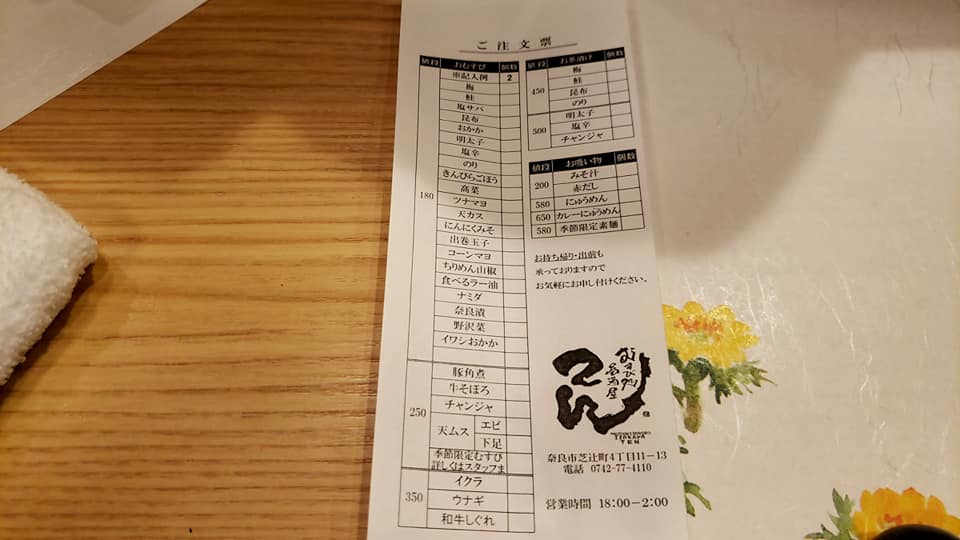 ご注文票
値段 おむすび 個数
㊟記入例 2
梅
鮭
塩サバ
昆布
おかか
明太子
塩辛
のり
きんぴらごぼう
高菜
180 ツナマヨ
天カス
にんにくみそ
出巻玉子
コーンマヨ
ちりめん山椒
食べるラー油
ナミダ
奈良漬
野沢菜
イワシおかか
豚角煮
牛そぼろ
250 チャンジャ
天ムス エビ
下足
季節限定むすび
詳しくはスタッフま
イクラ
350 ウナギ
和牛しぐれ
値段 お茶漬け 個数
梅
鮭
450 昆布
のり
明太子
500 塩辛
チャンジャ
値段 お吸い物 個数
200 みそ汁
赤だし
580 にゅうめん
650 カレーにゅうめん
580 季節限定素麺
お持ち帰り・出前も
承っておりますので
お気軽にお申し付けください。
てん
奈良市芝辻町4丁目11-13
電話 0742-77-4110
営業時間 18:00-2:00